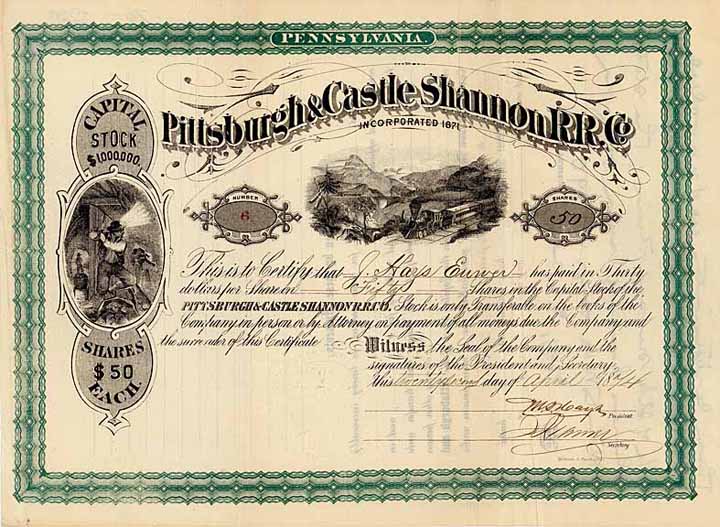 PENNSYLVANIA.
Pittsburgh & Castle Shannon R.R. Co
INCORPORATED 1871
CAPITAL
STOCK
$1,000,000.
NUMBER
6
SHARES
50
This is to Certify that J. Hays has paid in Thirty
dollars per Share on Fifty Shares in the Capital Stock of the
PITTSBURGH & CASTLE SHANNON R.R. CO. Stock is only Transferable on the books of the
Company in person or by Attorney on payment of all moneys due the Company and
the surrender of this Certificate Witness the Seal of the Company and the
signatures of the President and Secretary
this day of April 1874
SHARES
$50
EACH.
President
Secretary